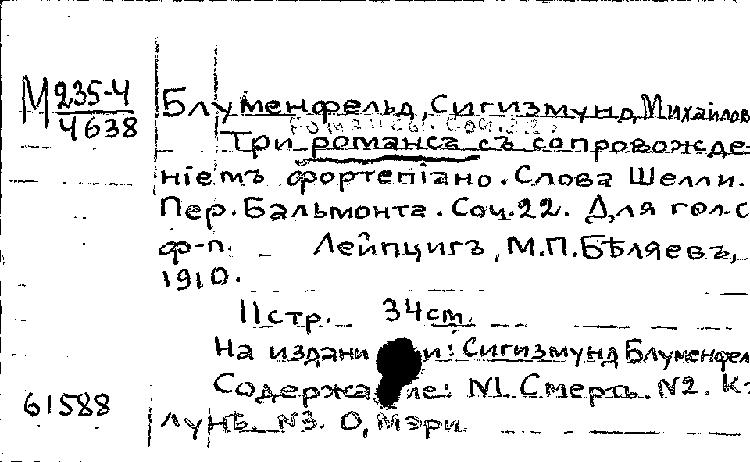 М 235-4
4638
Блуменфельд, Сигизмунд Михайлов
романсы. Соч. 22.
Три романса съ сопровожде-
ніемъ фортепіано. Слова Шелли.
Пер. Бальмонта. Соч. 22. Для гол. с
ф-п. Лейпцигъ, М.П. Бѣляевъ,
1910.
11 стр. 34 см.
На издани и: Сигизмунд Блуменфел
Содержа ие: N1. Смерть. N2. Къ
61588
лунѣ. N3. О, Мэри.